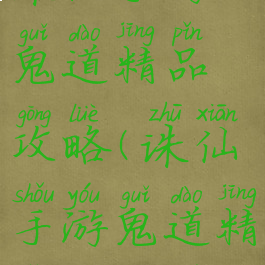 guǐ dào jīng pǐn
鬼道精品
gōng lüè zhū xiān
攻略(诛仙
shǒu yóu guǐ dào jīng
手游鬼道精